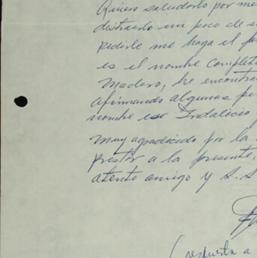 Quiero saludarlo por me
distraerlo un poco de s
pedirle me haga el f
es el nombre complet
Madero, he encontra
afirmando algunas pe
nombre es Indalecio
Muy agradecido por la
prestar a la presente,
atento amigo y S.S.
(respuesta a